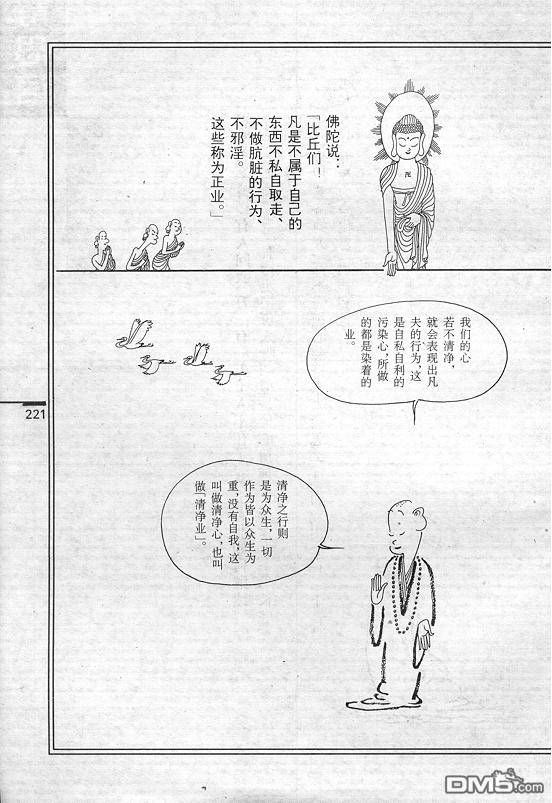 佛陀说：
「比丘们！
凡是不属于自己的
东西不私自取走、
不做肮脏的行为、
不邪淫。
这些称为正业。」
我们的心
若不清净，
就会表现出凡
夫的行为，这
是自私自利的
污染心，所做
的都是染着的
业。
221
清净之行则
是为众生，一切
作为皆以众生为
重，没有自我，这
叫做清净心，也叫
做「清净业」。
DM5.com